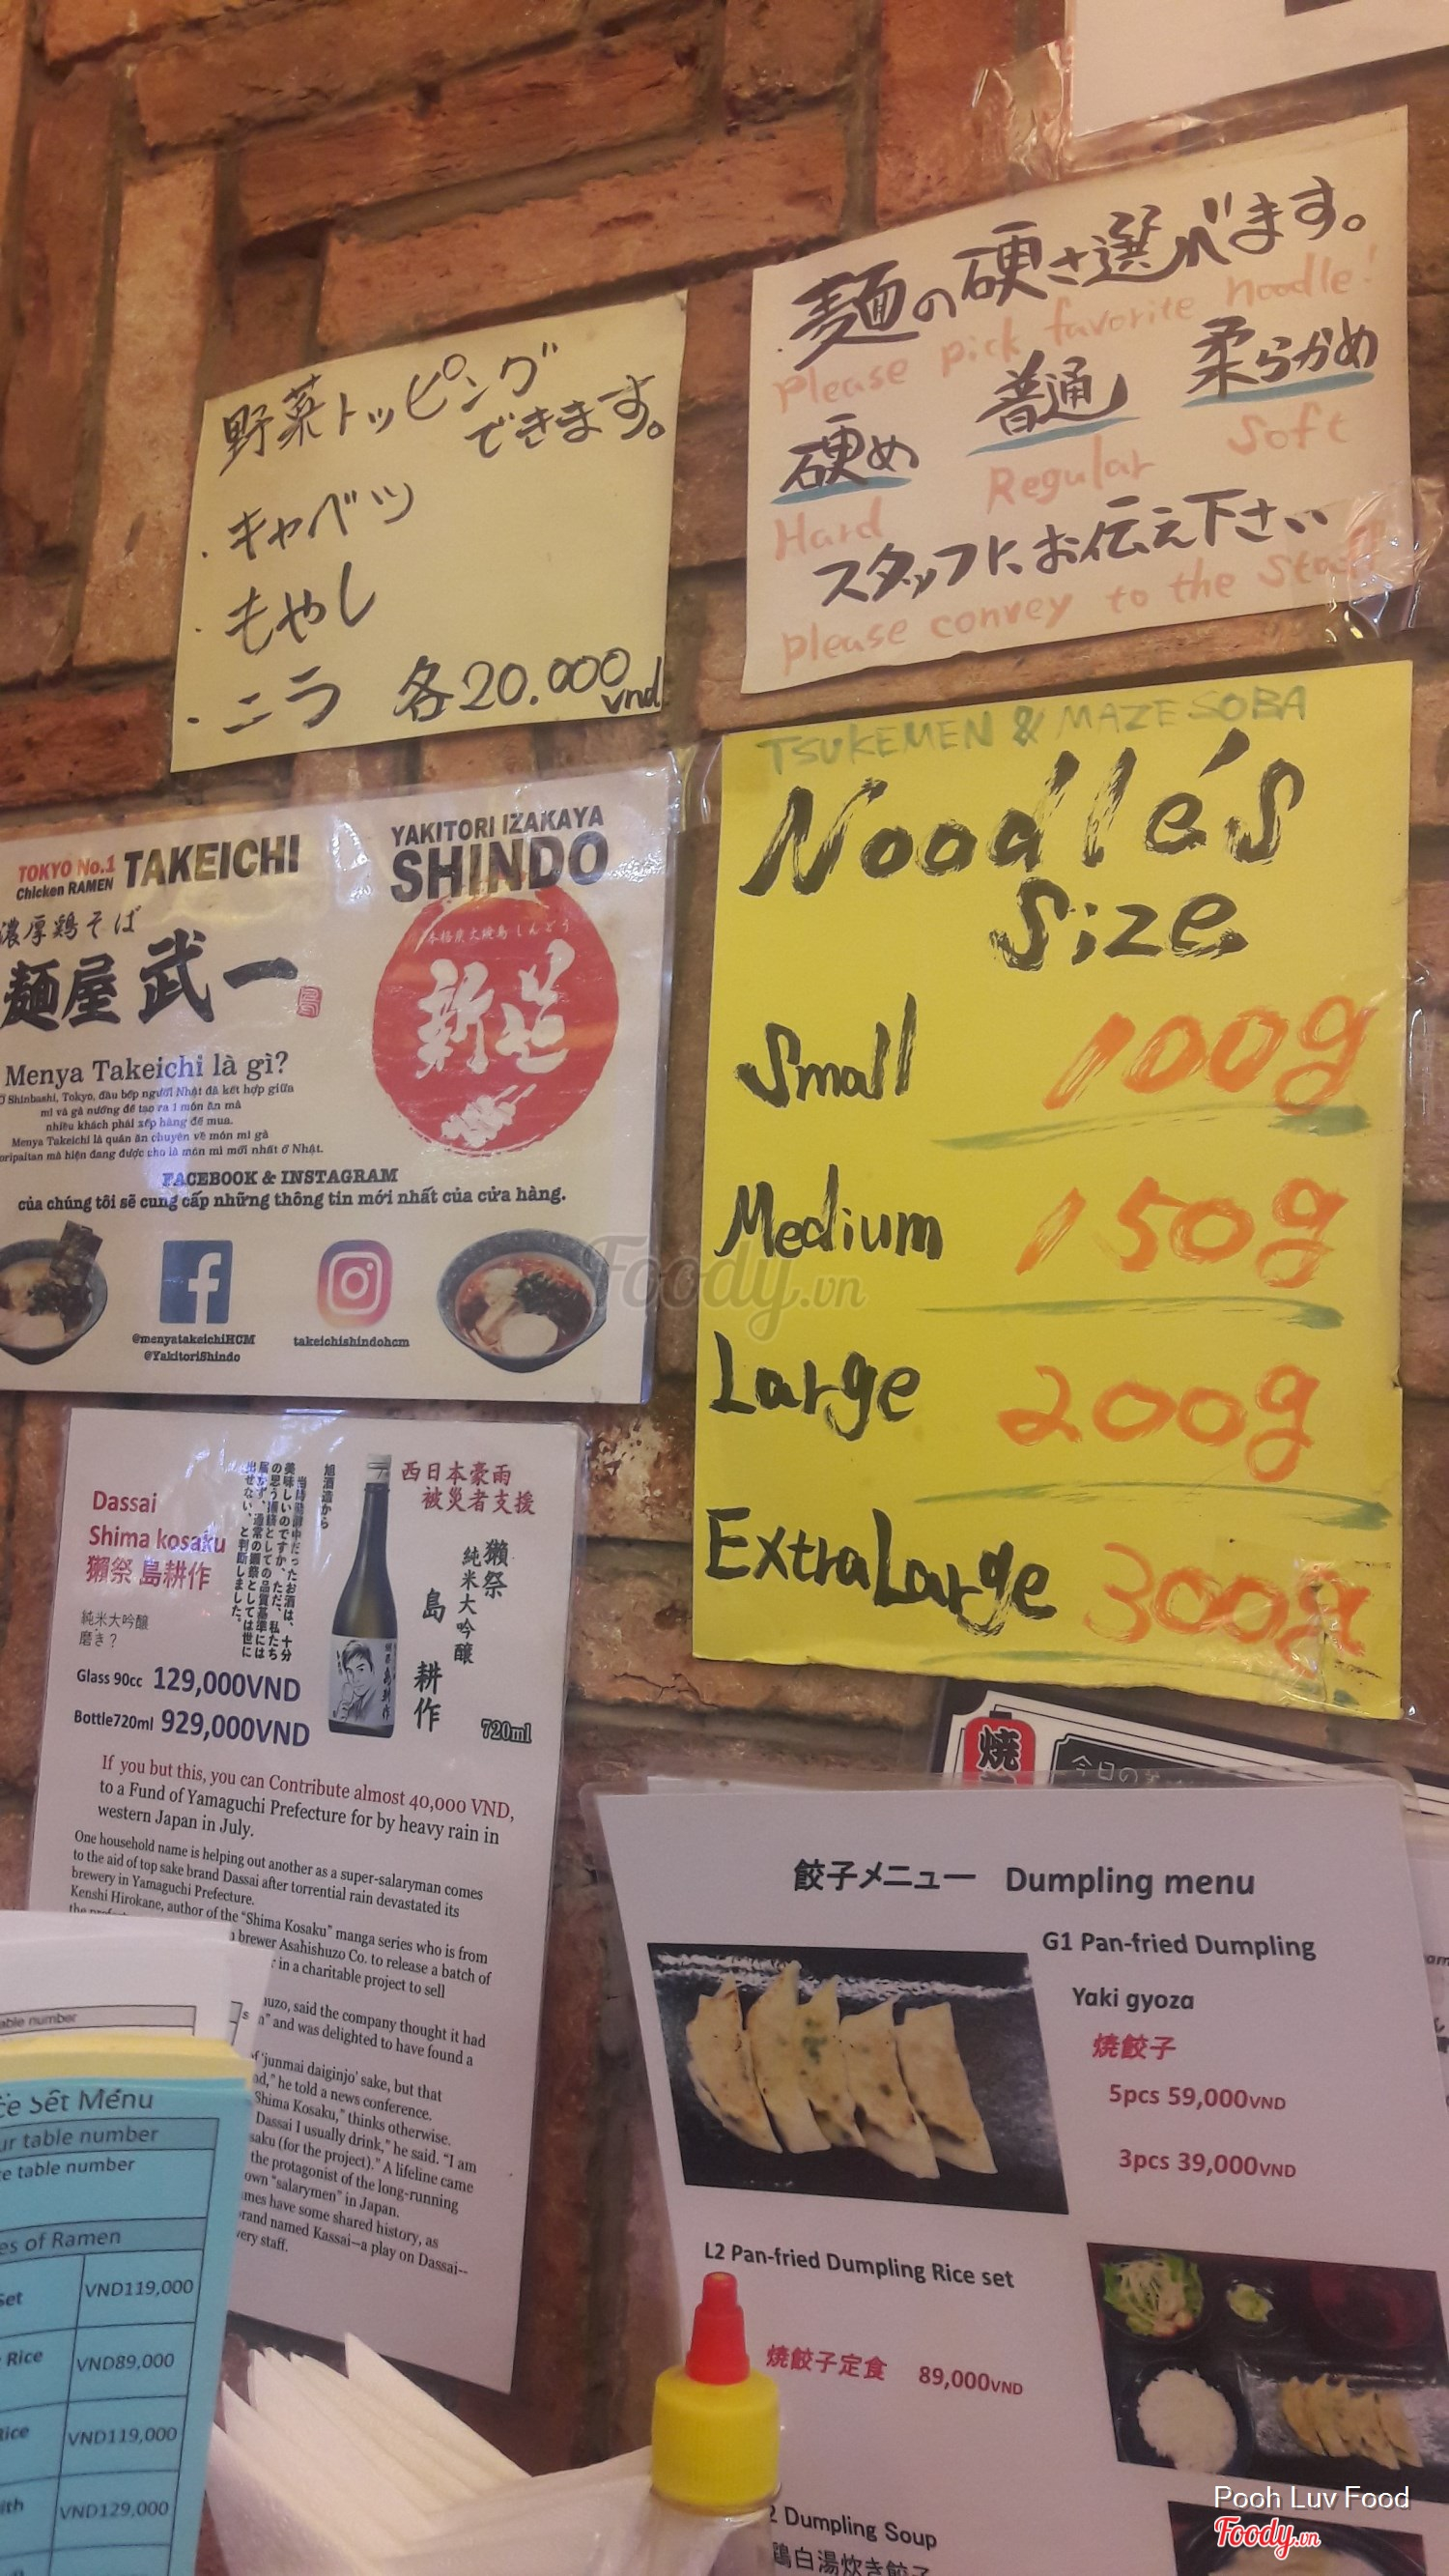 麺の硬さ選べます。
Please pick favorite noodle!
硬め 普通 柔らかめ
Hard Regular Soft
スタッフにお伝え下さい
please convey to the staff
野菜トッピング
できます。
・キャベツ
・もやし
・ニラ 各20.000vnd
TSUKEMEN & MAZESOBA
Noodle's
Size
Small 100g
Medium 150g
Large 200g
ExtraLarge 300g
TOKYO No.1
Chicken RAMEN
TAKEICHI
濃厚鶏そば
麺屋 武一
YAKITORI IZAKAYA
SHINDO
Menya Takeichi là gì?
Ở Shinbashi, Tokyo, đầu bếp người Nhật đã kết hợp giữa
mì và gà nướng để tạo ra 1 món ăn mà
nhiều khách phải xếp hàng để mua.
Menya Takeichi là quán ăn chuyên về món mì gà
oripaitan mà hiện đang được cho là món mì mới nhất ở Nhật.
FACEBOOK & INSTAGRAM
của chúng tôi sẽ cung cấp những thông tin mới nhất của cửa hàng.
@menyatakeichiHCM
@YakitoriShindo
takeichishindohcm
Foody.vn
Dassai
Shima kosaku
獺祭 島耕作
純米大吟醸
磨き?
Glass 90cc 129,000VND
Bottle720ml 929,000VND
旭酒造から
美味しいのですが、ただ、私たち
の思う獺祭としての品質基準には
届かず、通常の獺祭としては世に
出せない、と判断しました。
西日本豪雨
被災者支援
獺祭
純米大吟醸
島 耕作
720ml
If you but this, you can Contribute almost 40,000 VND,
to a Fund of Yamaguchi Prefecture for by heavy rain in
western Japan in July.
One household name is helping out another as a super-salaryman comes
to the aid of top sake brand Dassai after torrential rain devastated its
brewery in Yamaguchi Prefecture.
Kenshi Hirokane, author of the "Shima Kosaku" manga series who is from
brewer Asahishuzo Co. to release a batch of
in a charitable project to sell
uzo, said the company thought it had
" and was delighted to have found a
f 'junmai daiginjo' sake, but that
nd," he told a news conference.
Shima Kosaku," thinks otherwise.
Dassai I usually drink," he said. "I am
saku (for the project)." A lifeline came
the protagonist of the long-running
own "salarymen" in Japan.
mes have some shared history, as
rand named Kassai—a play on Dassai--
ery staff.
焼
今日の
餃子メニュー Dumpling menu
G1 Pan-fried Dumpling
Yaki gyoza
焼餃子
5pcs 59,000VND
3pcs 39,000VND
L2 Pan-fried Dumpling Rice set
焼餃子定食 89,000VND
2 Dumpling Soup
鶏白湯炊き餃子
able number
ce Set Menu
ur table number
te table number
es of Ramen
Set VND119,000
Rice VND89,000
Rice VND119,000
ith VND129,000
Pooh Luv Food
Foody.vn